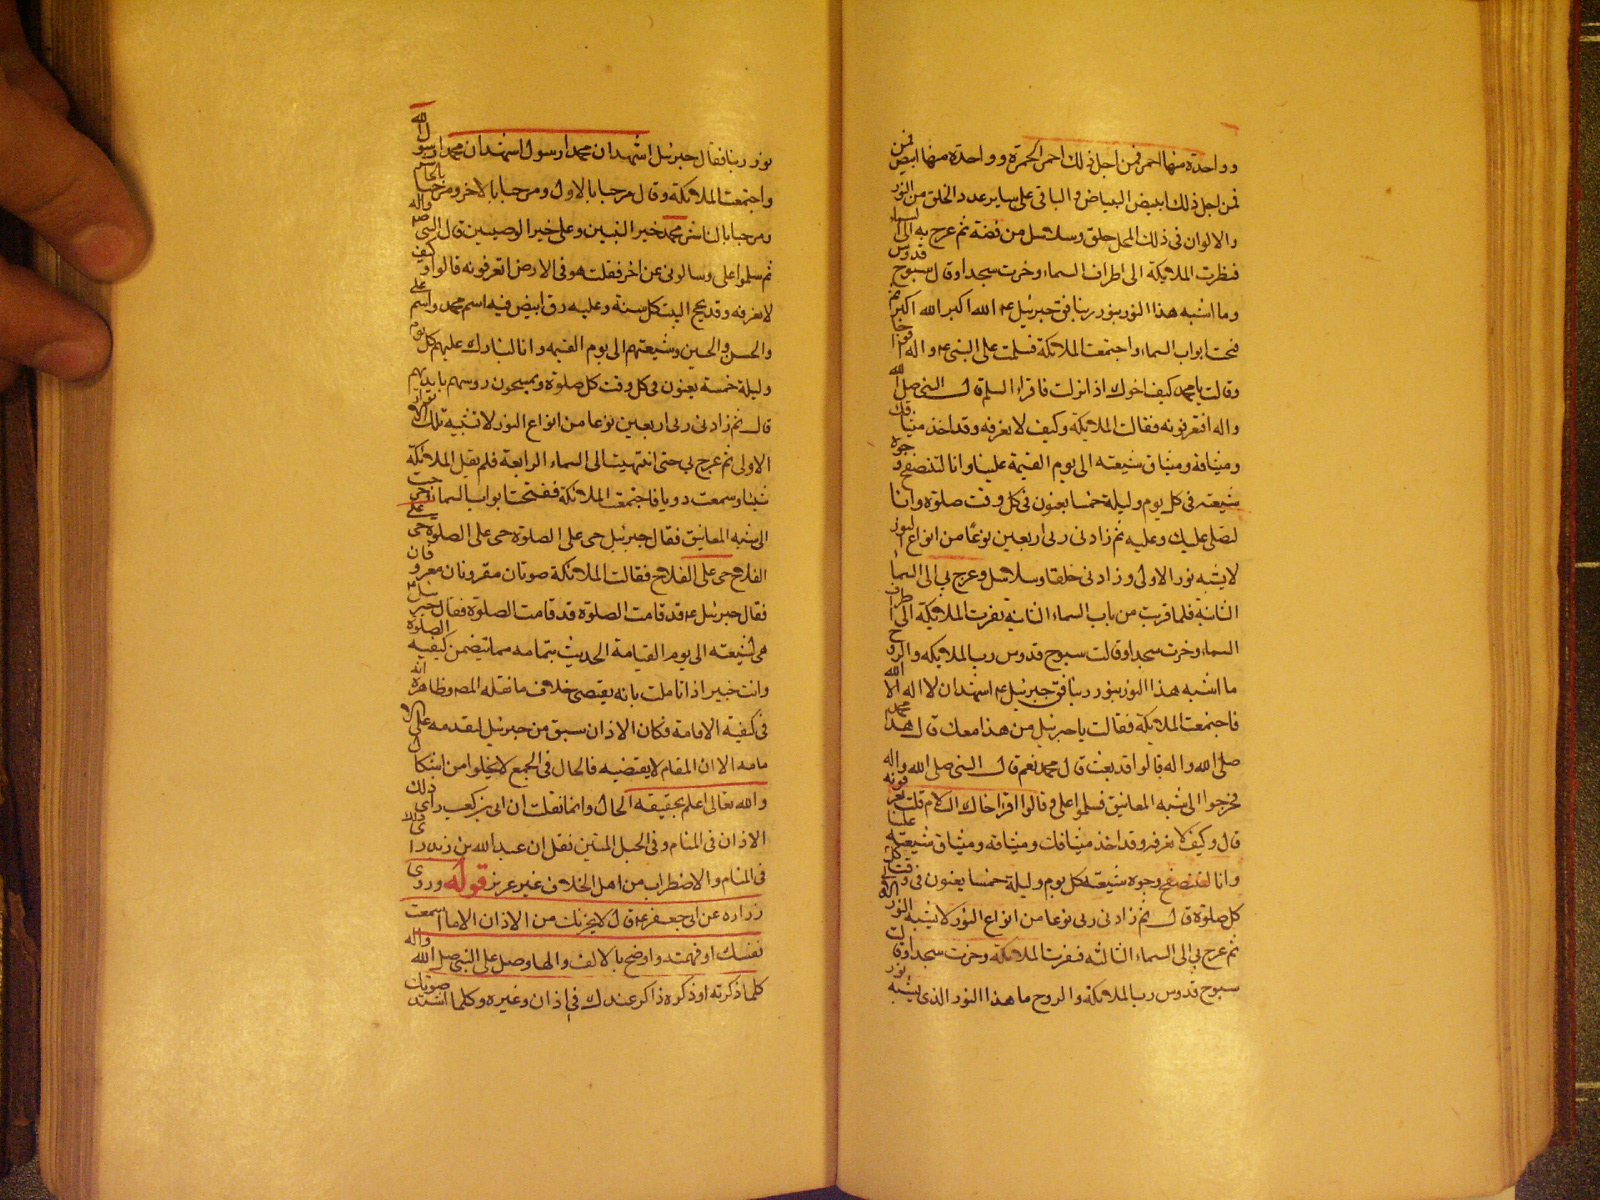 وواحدة منها احمر فمن اجل ذلك احمر الحمرة وواحدة منها ابيض فمن
فمن اجل ذلك ابيض البياض والباقى على ساير عدد الخلق من النور
والالوان فى ذلك المحمل حلق وسلاسل من فضة ثم عرج به الى السماء
فنظرت الملائكة الى اطراف السماء وخرت سجدا وقال سبوح قدوس
وما اشبه هذا النور بنور ربنا فق جبرئيل ع الله اكبر الله اكبر
فتحت ابواب السماء واجتمعت الملائكة فسلمت على النبى ع واله افواجا
وقالت يا محمد كيف اخوك اذا نزلت فاقراه السلم قال النبى صلى الله
واله افتعرفونه فقالت الملائكة وكيف لا نعرفه وقد اخذ ميثاقك
وميثاقه وميثاق شيعته الى يوم القيمة علينا وانا لنتصفح وجوه
شيعته فى كل يوم وليلة خمسا يعنون فى كل وقت صلوة وانا
لنصلى عليك وعليه ثم زادنى ربى اربعين نوعا من انواع النور
لا يشبه نور الاول وزادنى حلقا وسلاسل وعرج بى الى السما
الثانية فلما قربت من باب السماء الثانية نفرت الملائكة الى اطراف
السماء وخرت سجدا وقالت سبوح قدوس رب الملائكة والروح
ما اشبه هذا النور بنور ربنا فق جبرئيل ع اشهد ان لا اله الا الله
فاجتمعت الملائكة فقالت يا جبرئيل من هذا معك قال هذا محمد
صلى الله واله قالوا قد بعث قال محمد نعم قال النبى صلى الله واله
فخرجوا الى شبه المعانيق فسلموا على وقالوا اقرا اخاك السلام قلت تعرفونه
قال وكيف لا نعرفه وقد اخذ ميثاقك وميثاقه وميثاق شيعته علينا
وانا لنتصفح وجوه شيعته كل يوم وليلة خمسا يعنون فى وقت
كل صلوة قال ثم زادنى ربى نوعا من انواع النور لا يشبه النور
ثم عرج بى الى السماء الثالثه فنفرت الملائكة وخرت سجدا وقالت
سبوح قدوس رب الملائكة والروح ما هذا النور الذى يشبه نور
نور ربنا فقال جبرئيل اشهد ان محمدا رسول اشهد ان محمدا رسول الله
واجتمعت الملائكة وقال مرحبا بالاول ومرحبا بالاخر ومرحبا بالحاشر
ومرحبا بالناشر محمد خير النبيين وعلى خير الوصيين قال النبى ص واله
ثم سلموا على وسالونى عن اخى فقلت هو فى الارض اتعرفونه قالوا وكيف
لا نعرفه وقد يحج البيت كل سنة وعليه رق ابيض فيه اسم محمد واسم على
والحسن والحسين وشيعتهم الى يوم القيمه وانا لنبارك عليهم كل يوم
وليلة خمسة يعنون فى كل وقت كل صلوة ويمسحون روسهم بايديهم
قال ثم زادنى ربى اربعين نوعا من انواع النور لا تشبه تلك الانوار
الاولى ثم عرج بى حتى انتهيت الى السماء الرابعة فلم يقل الملائكة
شيئا وسمعت دويا فاجتمعت الملائكة ففتحت ابواب السما وخرجت
الى شبه المعانيق فقال جبرئيل حى على الصلوة حى على الصلوة حى على
الفلاح حى على الفلاح فقالت الملائكة صوتان مقرونان معروفان
فقال جبرئيل ع قد قامت الصلوة قد قامت الصلوة فقال جبرئيل
هى لشيعته الى يوم القيامة الحديث بتمامه مما تيضمن كيفيه الصلوة
وانت خبير اذا تاملت بانه يقتضى خلاف ما نقله المص وظاهره انه
فى كيفية الاقامة فكان الاذان سبق من جبرئيل لتقدمه على الا
مامه الا ان المقام لا يقتضيه فالحال فى الجمع لا يخلوا من اشكال
والله تعالى اعلم بحقيقة الحال وانما نقلت ان ابى بن كعب راى ذلك
الاذان فى المنام وفى الحبل المتين نقل ان عبد الله بن زيد راى والا
فى المنام والاضطراب من اهل الخلاف غير عزيز قوله وروى
زراره عن ابى جعفر ع قال لا يجزيك من الاذان الا ما اسمعت
نفسك او فهمته واوضح بالالف والهاء وصل على النبى صلى الله واله
كلما ذكرته او ذكره ذاكر عندك فى اذان وغيره وكلما اشتد صوتك